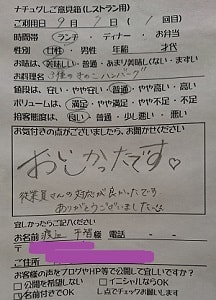 ナチュグレご意見箱(レストラン用)
ご利用日 9月7日(1回目)
時間帯 ランチ・ディナー・お弁当
性別 女性・男性 年齢 才代
お味は、美味しい・普通・あまり美味しくない・まずい
お料理名 3種のきのこハンバーグ
値段は、安い・やや安い・普通・やや高い・高い
ボリュームは、満足・やや満足・普通・やや不足・不足
接客態度は、良い・普通・少し悪い・悪い
お気付きの点がございましたら、お聞かせください
おいしかったです♡
従業員さんの対応が良かったです
ありがとうございました
宜しかったらご記入ください
お名前 様 電話 - -
〒
ご住所
お客様の声をブログやHP等で公開して宜しいですか?
□公開を希望しない □イニシャルならOK
□名前付きでOK レ点でチェックお願いします